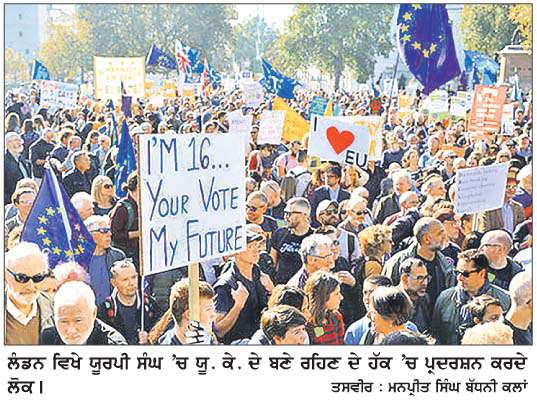 I'M 16...
YOUR VOTE
MY FUTURE
I ❤ EU
ਲੰਡਨ ਵਿਖੇ ਯੂਰਪੀ ਸੰਘ 'ਚ ਯੂ. ਕੇ. ਦੇ ਬਣੇ ਰਹਿਣ ਦੇ ਹੱਕ 'ਚ ਪ੍ਰਦਰਸ਼ਨ ਕਰਦੇ
ਲੋਕ। ਤਸਵੀਰ : ਮਨਪ੍ਰੀਤ ਸਿੰਘ ਬੱਧਨੀ ਕਲਾਂ